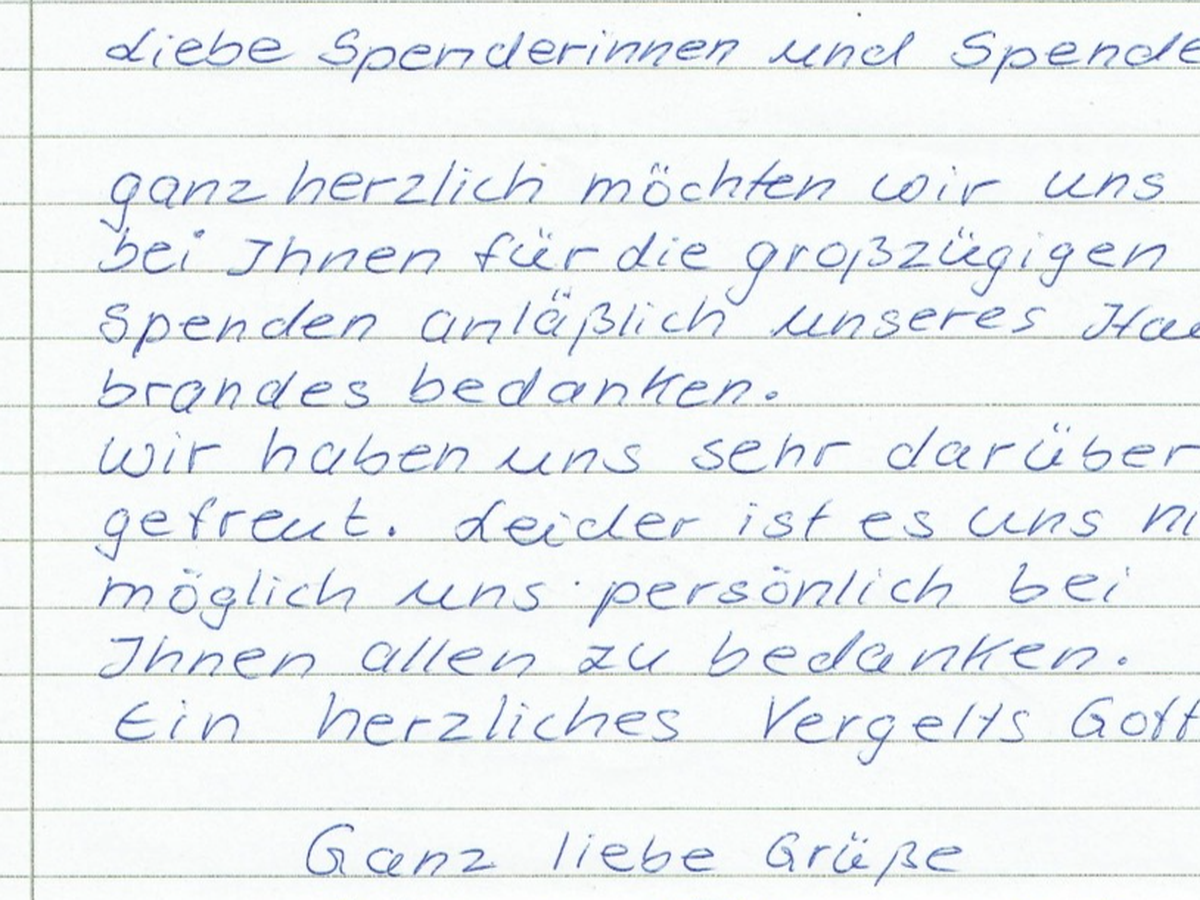 Liebe Spenderinnen und Spende
ganz herzlich möchten wir uns
bei Ihnen für die großzügigen
Spenden anläßlich unseres Hau
brandes bedanken.
Wir haben uns sehr darüber
gefreut. Leider ist es uns ni
möglich uns persönlich bei
Ihnen allen zu bedanken.
Ein herzliches Vergelts Gott
Ganz liebe Grüße